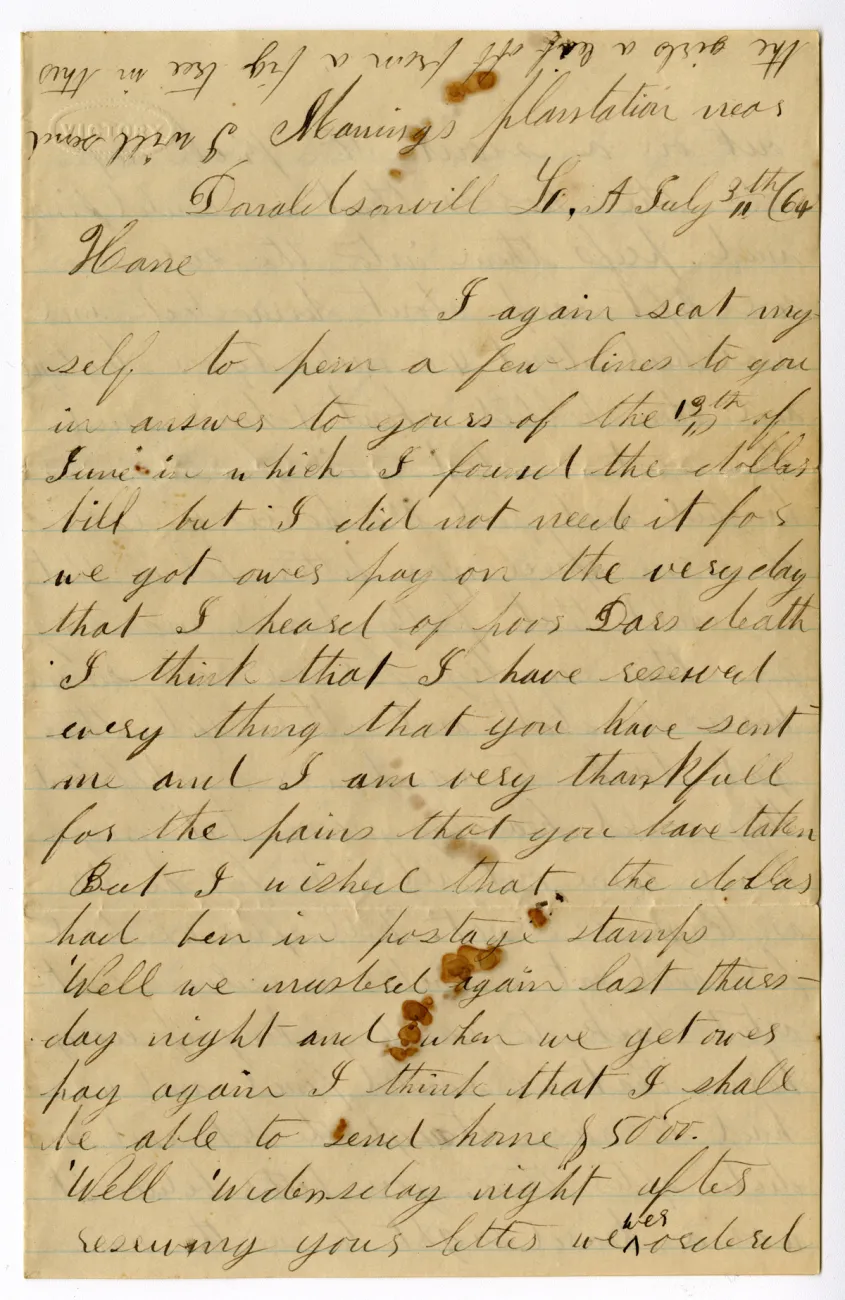 I will send
the girls a leaf off from a fig tree in this
Manings plantation near
Donaldsonvill La, A July 3th /64
Hane
I again seat my
self to pem a few lines to you
in answer to yours of the 19th of
June in which I found the dollar
bill but I did not neede it for
we got ower pay on the very day
that I heard of poor Dars death
I think that I have reserved
every thing that you have sent
me and I am very thankfull
for the pains that you have taken
But I wished that the dollar
had ben in postage stamps
Well we mustered again last thurs-
day night and when we get ower
pay again I think that I shall
be able to send home $ 50 00.
Well Widensday night after
reseiving your letter we wer ordered